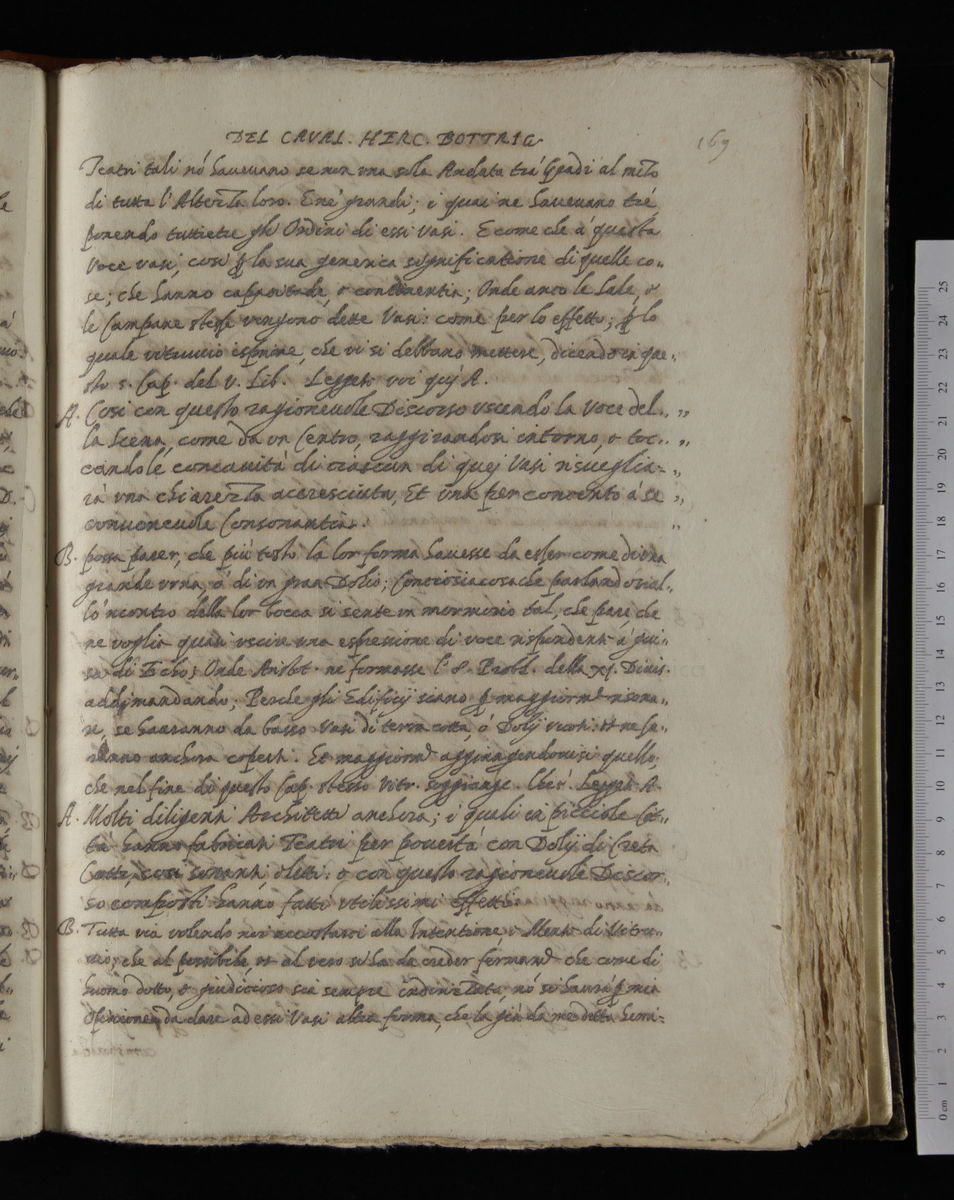 DEL CAVAL. HERC. BOTTRIG.
169
Teatri tali nō haueuano se non una sola Andata trà Gradi al mezo
di tutta l'Altezza loro. E ne' grandi; i quai ne haueuano tré
ponendo tuttietre gli Ordini di essi Vasi. E come che à questa
Voce vasi, cosi ꝑ la sua generica significatione di quelle co-
se; che hanno capacitade, o continentia; Onde anco le Sale, &
le Campane stesse vengono dette Vasi: come per lo effetto; ꝑ lo
quale vitruuio esprime, che vi si debbano mettere, dicendo in que-
sto 5. Cap. del V. Lib. Leggete voi qui A.
A. Cosi con questo ragioneuole Discorso uscendo la Voce del- „
la Scena, come da un Centro, raggirandosi intorno, & toc- „
cando le concauità di ciascun di quei Vasi risueglia- „
rà vna chiarezza accresciuta, Et una per concento à se „
conueneuole Consonantia. „
B. possa parer, che più tosto la lor forma hauesse da esser come di una
grande vrna, ò di un gran Dolio; Conciosiacosache parlando ui al-
lo'ncontro della lor bocca si sente un mormorio tal, che pare che
ne voglia quasi uscire una espressione di voce rispondente à gui-
sa di Echo; Onde Aristot. ne formasse l' 8. Probl. della XI. Diuis.
addimandando; Perche gli Edificij siano ꝑ maggiormᵗᵉ risona-
re, se hauranno da basso Vasi di terra cotta, ò Dolij vuoti: et ne sa-
ranno anchora coperti. Et maggiormᵗᵉ aggiungendouisi quello,
che nel fine di questo Cap. stesso Vitr. soggiunge. Leggete A.
A. Molti diligenti Architetti anchora; i quali in picciole Cit-
tà hanno fabricati Teatri per pouertà con Dolij di Creta
Cotta, cosi sonanti eletti: & con questo ragioneuole Discor-
so composti hanno fatti utilissimi effetti.
B. Tutta via volendo noi accostarci alla Intentione & Mente di Vitru-
uio; che al possibile et al vero si ha da creder fermamᵗᵉ che come di
huomo dotto, & giudicioso sia sempre indrizzata, nō si haurà ꝑ mia
Openione da dare ad essi Vasi altra forma, che la già da me detta Semi-